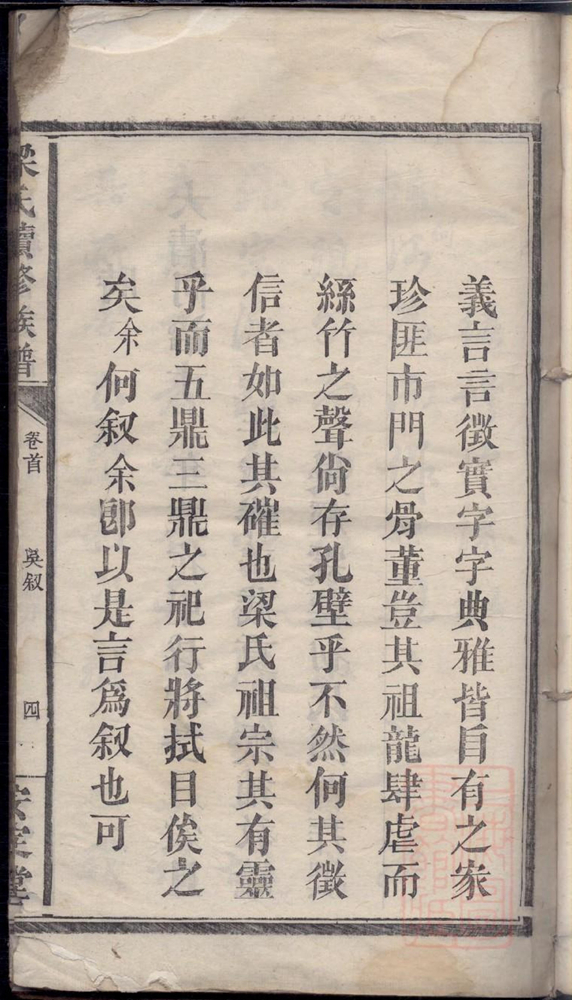 義言言徵實字字典雅皆自有之家
珍匪市門之骨董豈其祖龍肆虐而
絲竹之聲尚存孔壁乎不然何其徵
信者如此其確也梁氏祖宗其有靈
乎而五鼎三鼎之祀行將拭目俟之
矣余何叙余卽以是言爲叙也可
梁氏續修族譜
卷首
吳叙
四
安定堂